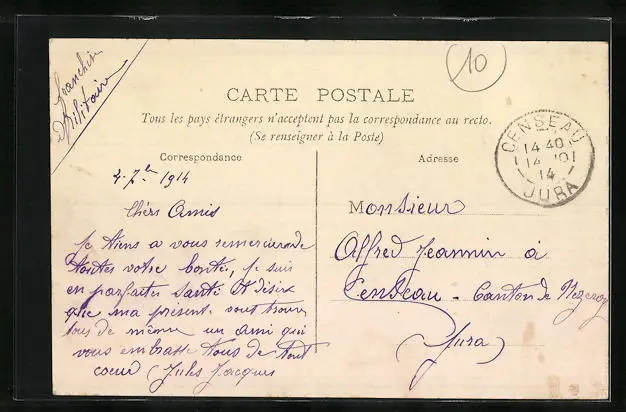 10
Franchise
Militaire
CARTE POSTALE
Tous les pays étrangers n'acceptent pas la correspondance au recto.
(Se renseigner à la Poste)
Correspondance
Adresse
CENSEAU
14 40
14
14
JURA
4-7bre 1914
Chèrs Amis
Je tiens a vous remercier de
toutes votre bontée, Je suis
en parfaites santé et désire
que ma présente vout trouve
tous de même un ami qui
vous embrasse tous de tout
coeur Jules Jacques
Monsieur
Alfred Jeannin à
Censeau - Canton de Nozeroy
(Jura)